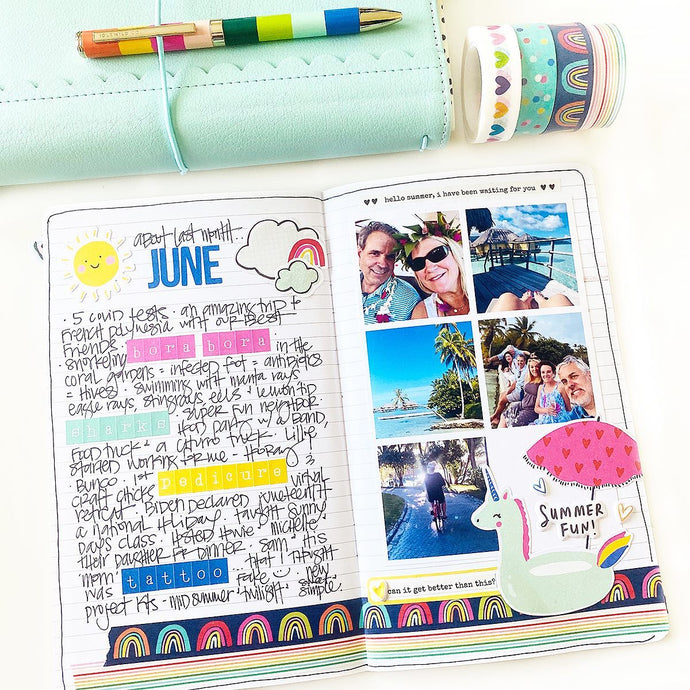 hello summer, i have been waiting for you
about last month..
JUNE
. 5 covid tests . an amazing trip to
French Polynesia with our best
friends . bora bora . in the
snorkeling
coral gardens = infected foot = antibiotics
= hives . swimming with manta rays
eagle rays, stingrays eels & lemon tip
sharks . super fun neighbor
hood party w/ a band,
food truck & a Catrino truck . Lillie
started working for me - Hooray! 3
. Bunco . 1st pedicure . virtual
craft chicks
retreat . Biden declared Juneteenth
a national holiday . taught sunny
days class . hosted Howie & Michelle &
their daughter for dinner . Sam's
mom . tattoo that I thought
was fake . new
project kits - mid summer, twilight & sweet simple.
can it get better than this?
SUMMER
FUN!